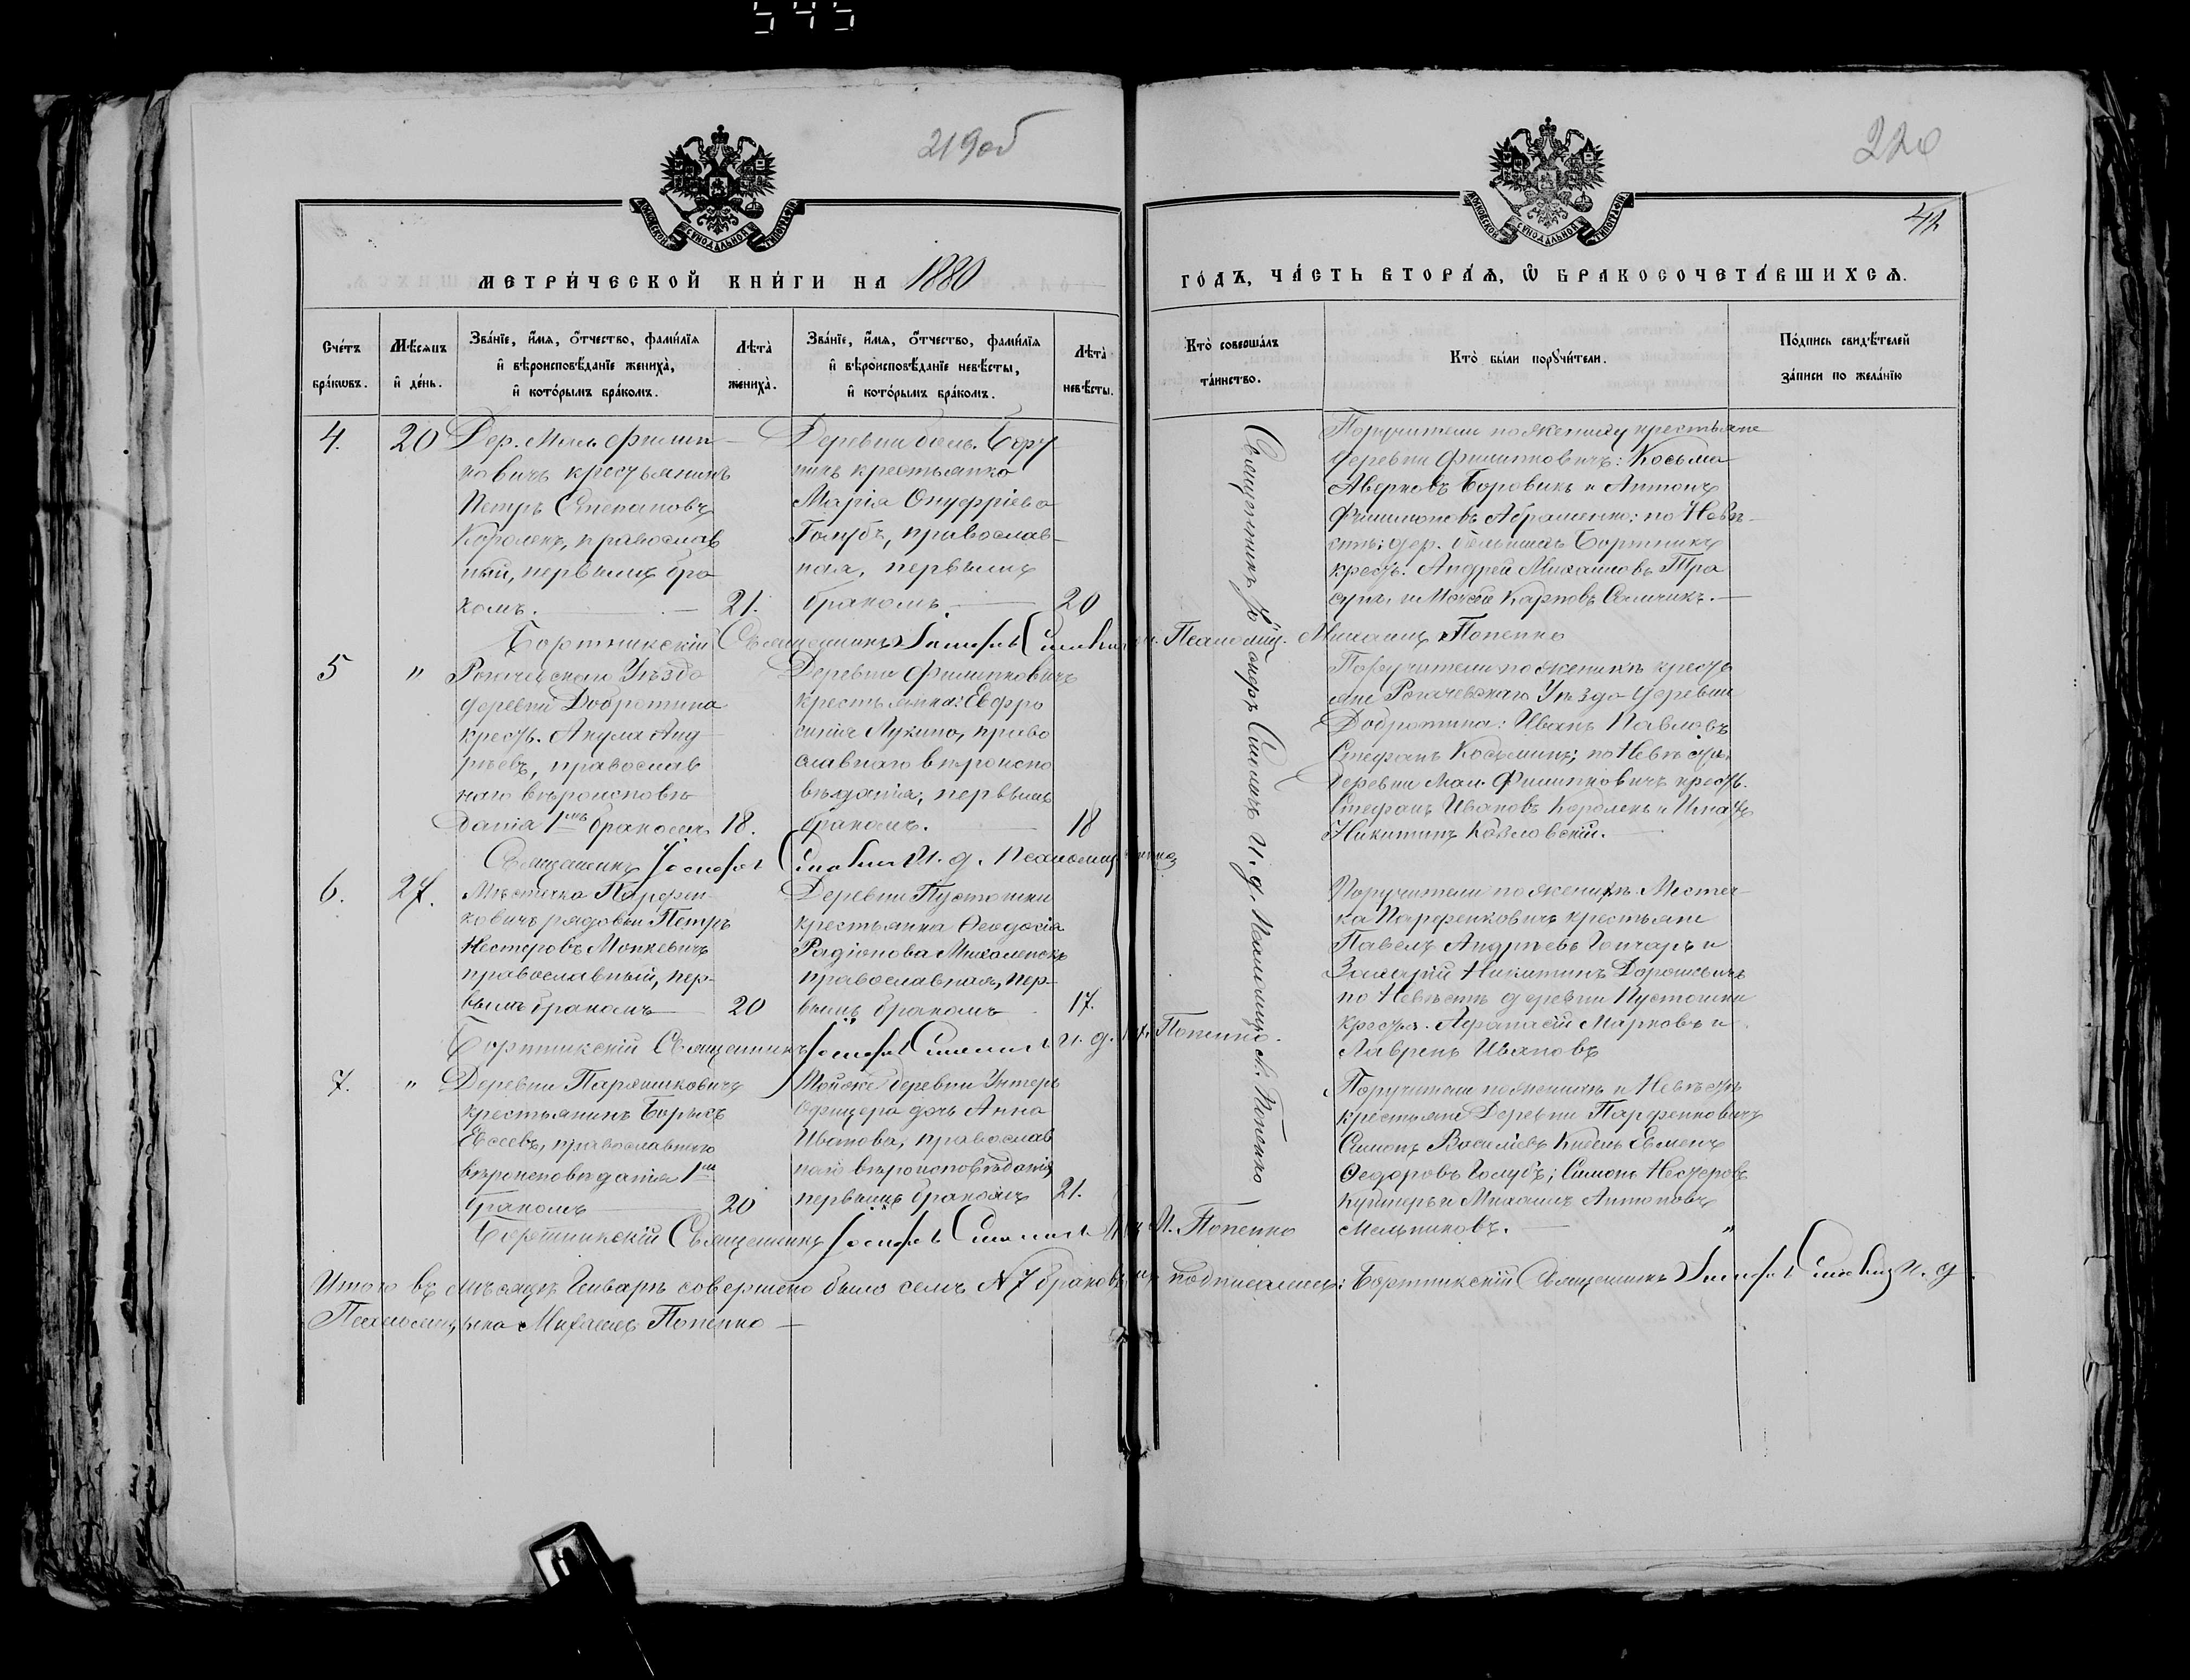 545
219об
220
42
МОСКОВСКОЙ СѴНОДАЛЬНОЙ ТИПОГРАФІИ
МОСКОВСКОЙ СѴНОДАЛЬНОЙ ТИПОГРАФІИ
МЕТРИ́ЧЕСКОЙ КНИ́ГИ НА 1880
ГО́ДЪ, ЧА́СТЬ ВТОРА́Ѧ, Ѿ БРАКОСОЧЕТА́ВШИХСѦ.
Сче́тъ бра́кѡвъ.
Мѣ́сѧцъ и҆ де́нь.
Зва́нїе, и҆́мѧ, ѻ҆́тчество, фами́лїѧ
и҆ вѣроисповѣ́данїе жениха̀,
и҆ кото́рымъ бра́комъ.
Лѣта̀ жениха̀.
Зва́нїе, и҆́мѧ, ѻ҆́тчество, фами́лїѧ
и҆ вѣроисповѣ́данїе невѣ́сты,
и҆ кото́рымъ бра́комъ.
Лѣта̀ невѣ́сты.
Кто̀ соверша́лъ та́инство.
Кто̀ бы́ли порꙋчи́тели.
По́дпись свидѣ́телей за́писи по жела́нїю
4.
20
Дер. Мал. Филип
ковичь крестьянинъ
Петръ Степановъ
Короленъ, православ
ный, первымъ бра
комъ.
21.
Деревни боль. Борт
никъ крестьянка
Марія Онуфріева
Голубъ, православ-
ная, первымъ
бракомъ
20
Поручители по жениху крестьяне
деревни Филипковичъ: Косьма
Аверковъ Боровикъ и Антонъ
Филимоновъ Абраменко: по Невѣ-
стѣ: дер. большихъ Бортникъ
крест. Андрей Михайловъ Пра
и Моисей Карповъ
Бортникскій Священникъ Іосифъ Псаломщ. Михаилъ Попенко
5
"
Рогачевскаго Уѣзда
деревни Добротина
крест. Акула Анд
ріевъ, православ
наго вѣроисповѣ
данія 1мъ бракомъ
18.
Деревни Филипковичъ
крестьянка: Евфро
синія Лукина, право
славнаго вѣроиспо
вѣданія, первымъ
бракомъ.
18
Поручители по женихѣ кресть
яне Рогачевскаго Уѣзда деревни
Добротина: Иванъ Павловъ
Стефанъ Козьминъ; по Невѣстѣ
деревни Мал. Филипковичъ крест.
Стефанъ Ивановъ Короленъ и Игнатъ
Никитинъ Козловскій.
Священникъ Іосифъ И. д. Псаломщ
6.
27.
Мѣстечка Парфен-
ковичъ рядовой Петръ
Нестеровъ Монкевичъ
православный, пер-
вымъ бракомъ
20
Деревни Пустошки
крестьянка Ѳеодосія
Радіонова
православная, пер-
вымъ бракомъ
17.
Поручители по женихѣ Местеч-
ка Парфенковичъ крестьяне
Павелъ Андреевъ Гончаръ и
Захарій Никитинъ Дорошевичъ
по Невѣстѣ деревни Пустошки
крест. Афанасій Марковъ и
Лаврень Ивановъ
Бортникскій Священникъ Іосифъ И. д. Попенко.
7.
"
Деревни
крестьянинъ Борисъ
Евсеевъ, православнаго
вѣроисповѣданія 1мъ
бракомъ
20
Тойже деревни Унтеръ
Офицера дочь Анна
Иванова, православ
наго вѣроисповѣданія
первымъ бракомъ
21.
Поручители по женихѣ и Невѣстѣ
крестьяне Деревни Парфенковичъ
Симонъ Василіевъ Евменъ
Ѳедоровъ Голубъ; Симонъ Нестеровъ
и Михаилъ Антоновъ
Мельниковъ.
"
Бортникскій Священникъ Іосифъ Попенко
Священникъ Іосифъ И. д. Псаломщ. М. Попенко
Итого въ мѣсяцѣ Генварѣ совершено было семъ №7 браковъ подписались: Бортникскій Священникъ Іосифъ И. д.
Псаломщика Михаилъ Попенко